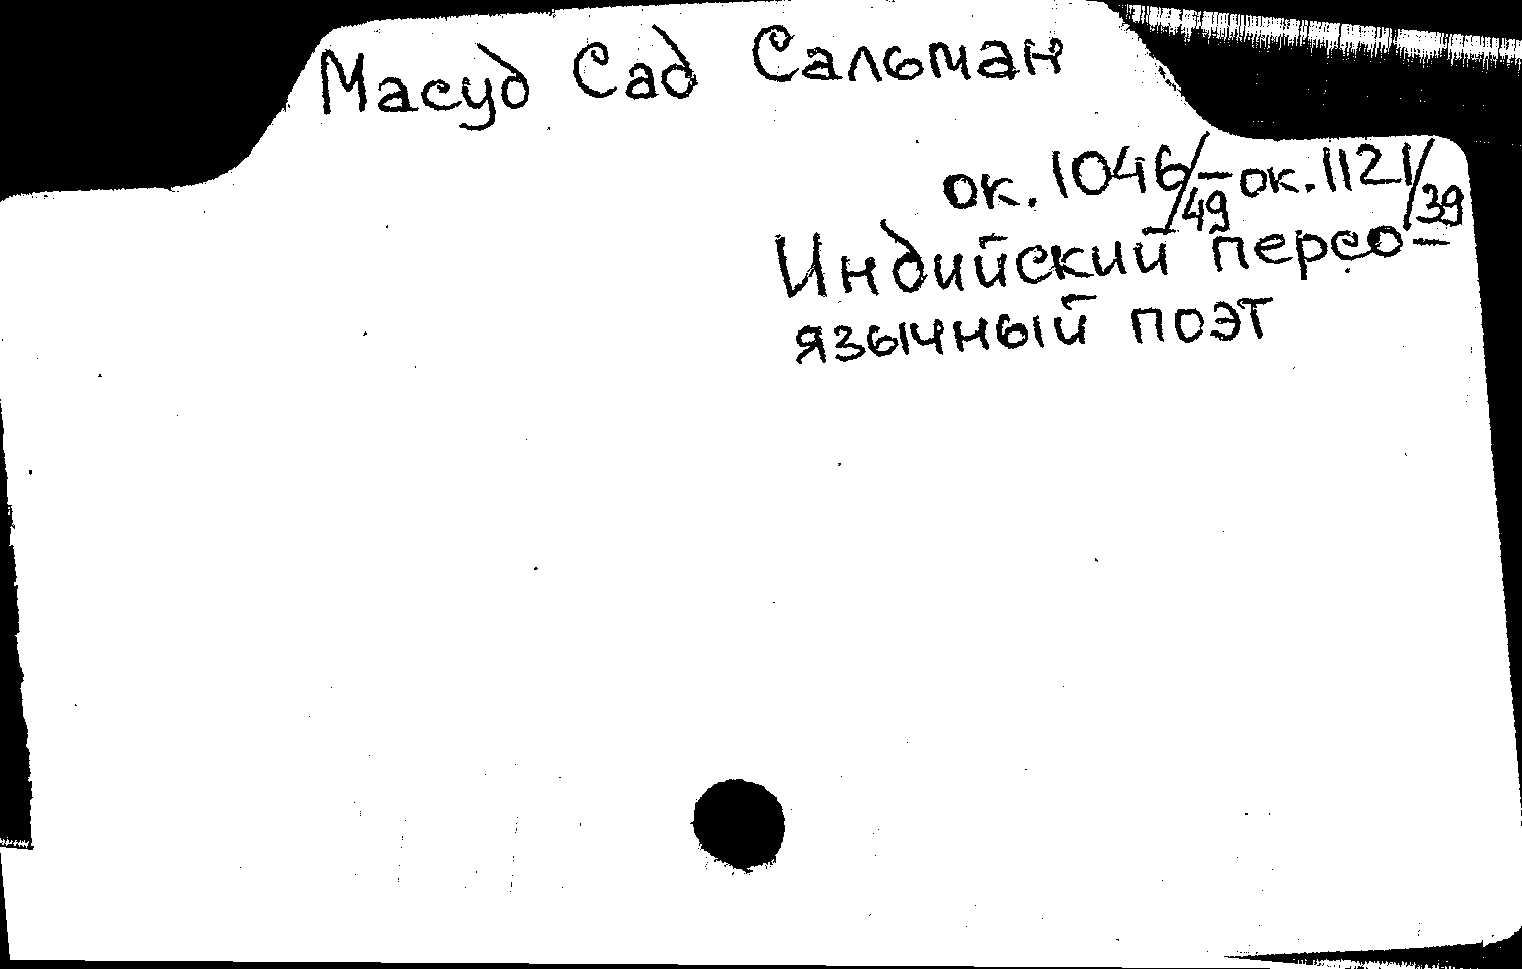 Масуд Сад Сальман
ок. 1046/49 – ок. 1121/39
Индийский персо-
язычный поэт